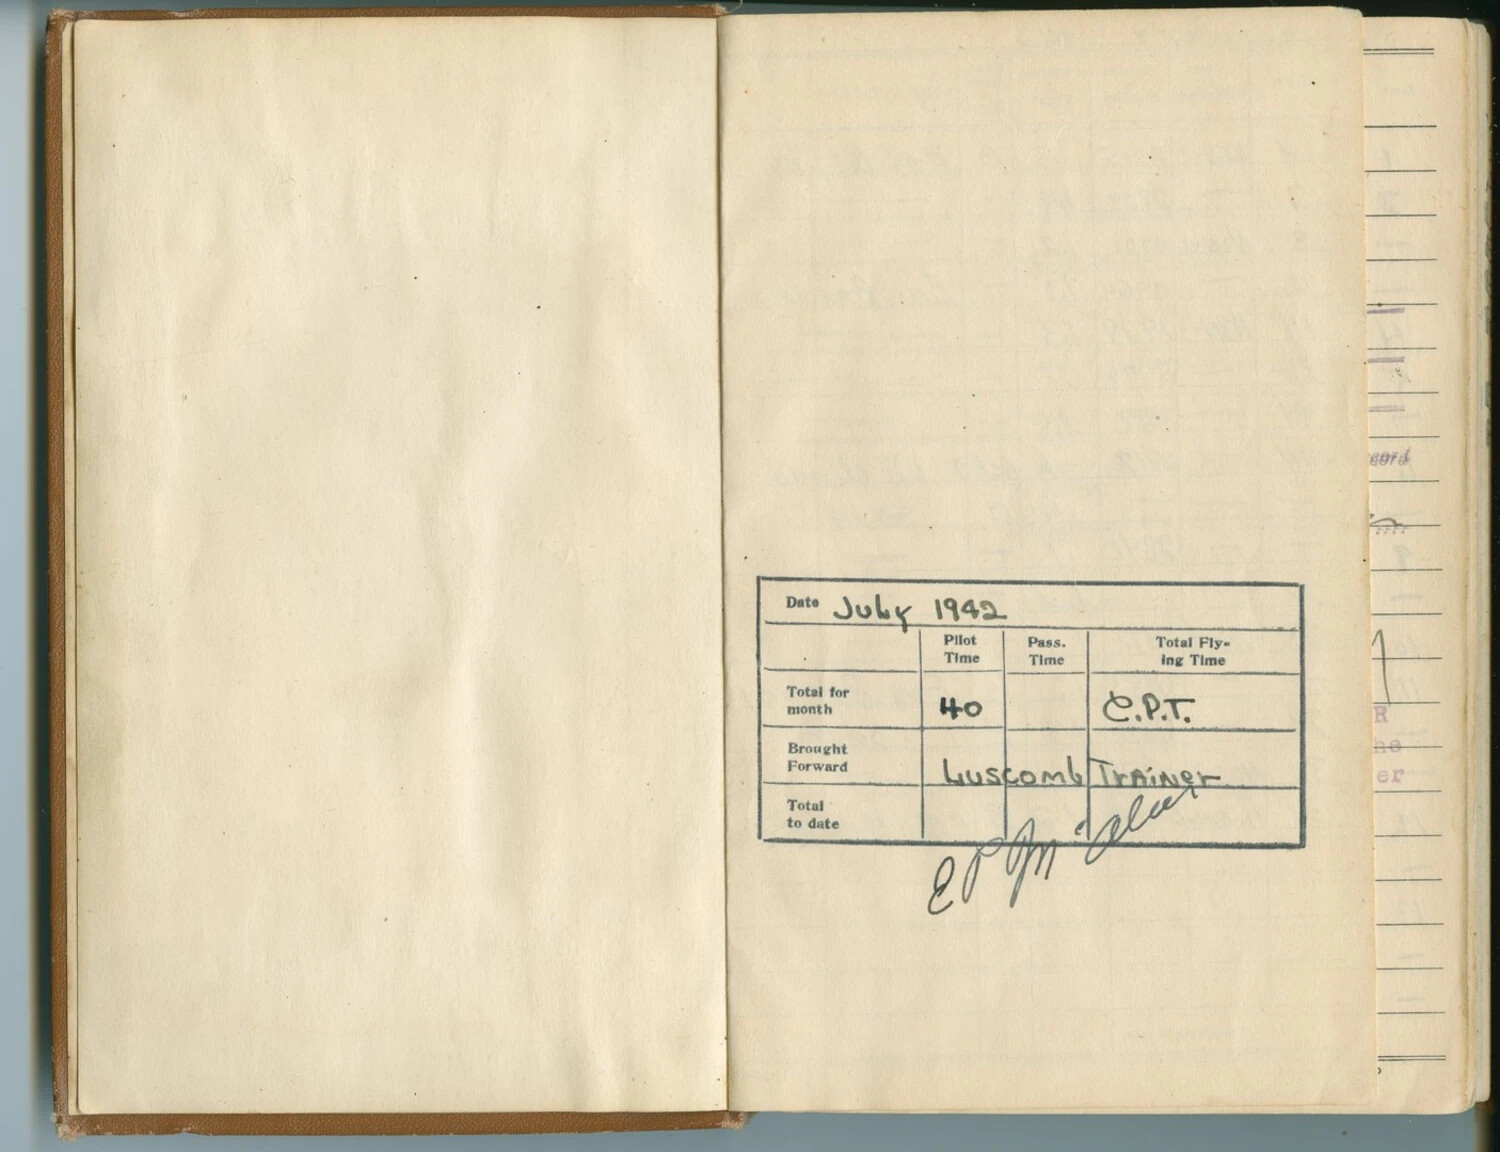 Date July 1942
Pilot Time
Pass. Time
Total Fly-
ing Time
Total for month
40
C.P.T.
Brought Forward
Luscomb Trainer
Total to date
E P
R
he
er